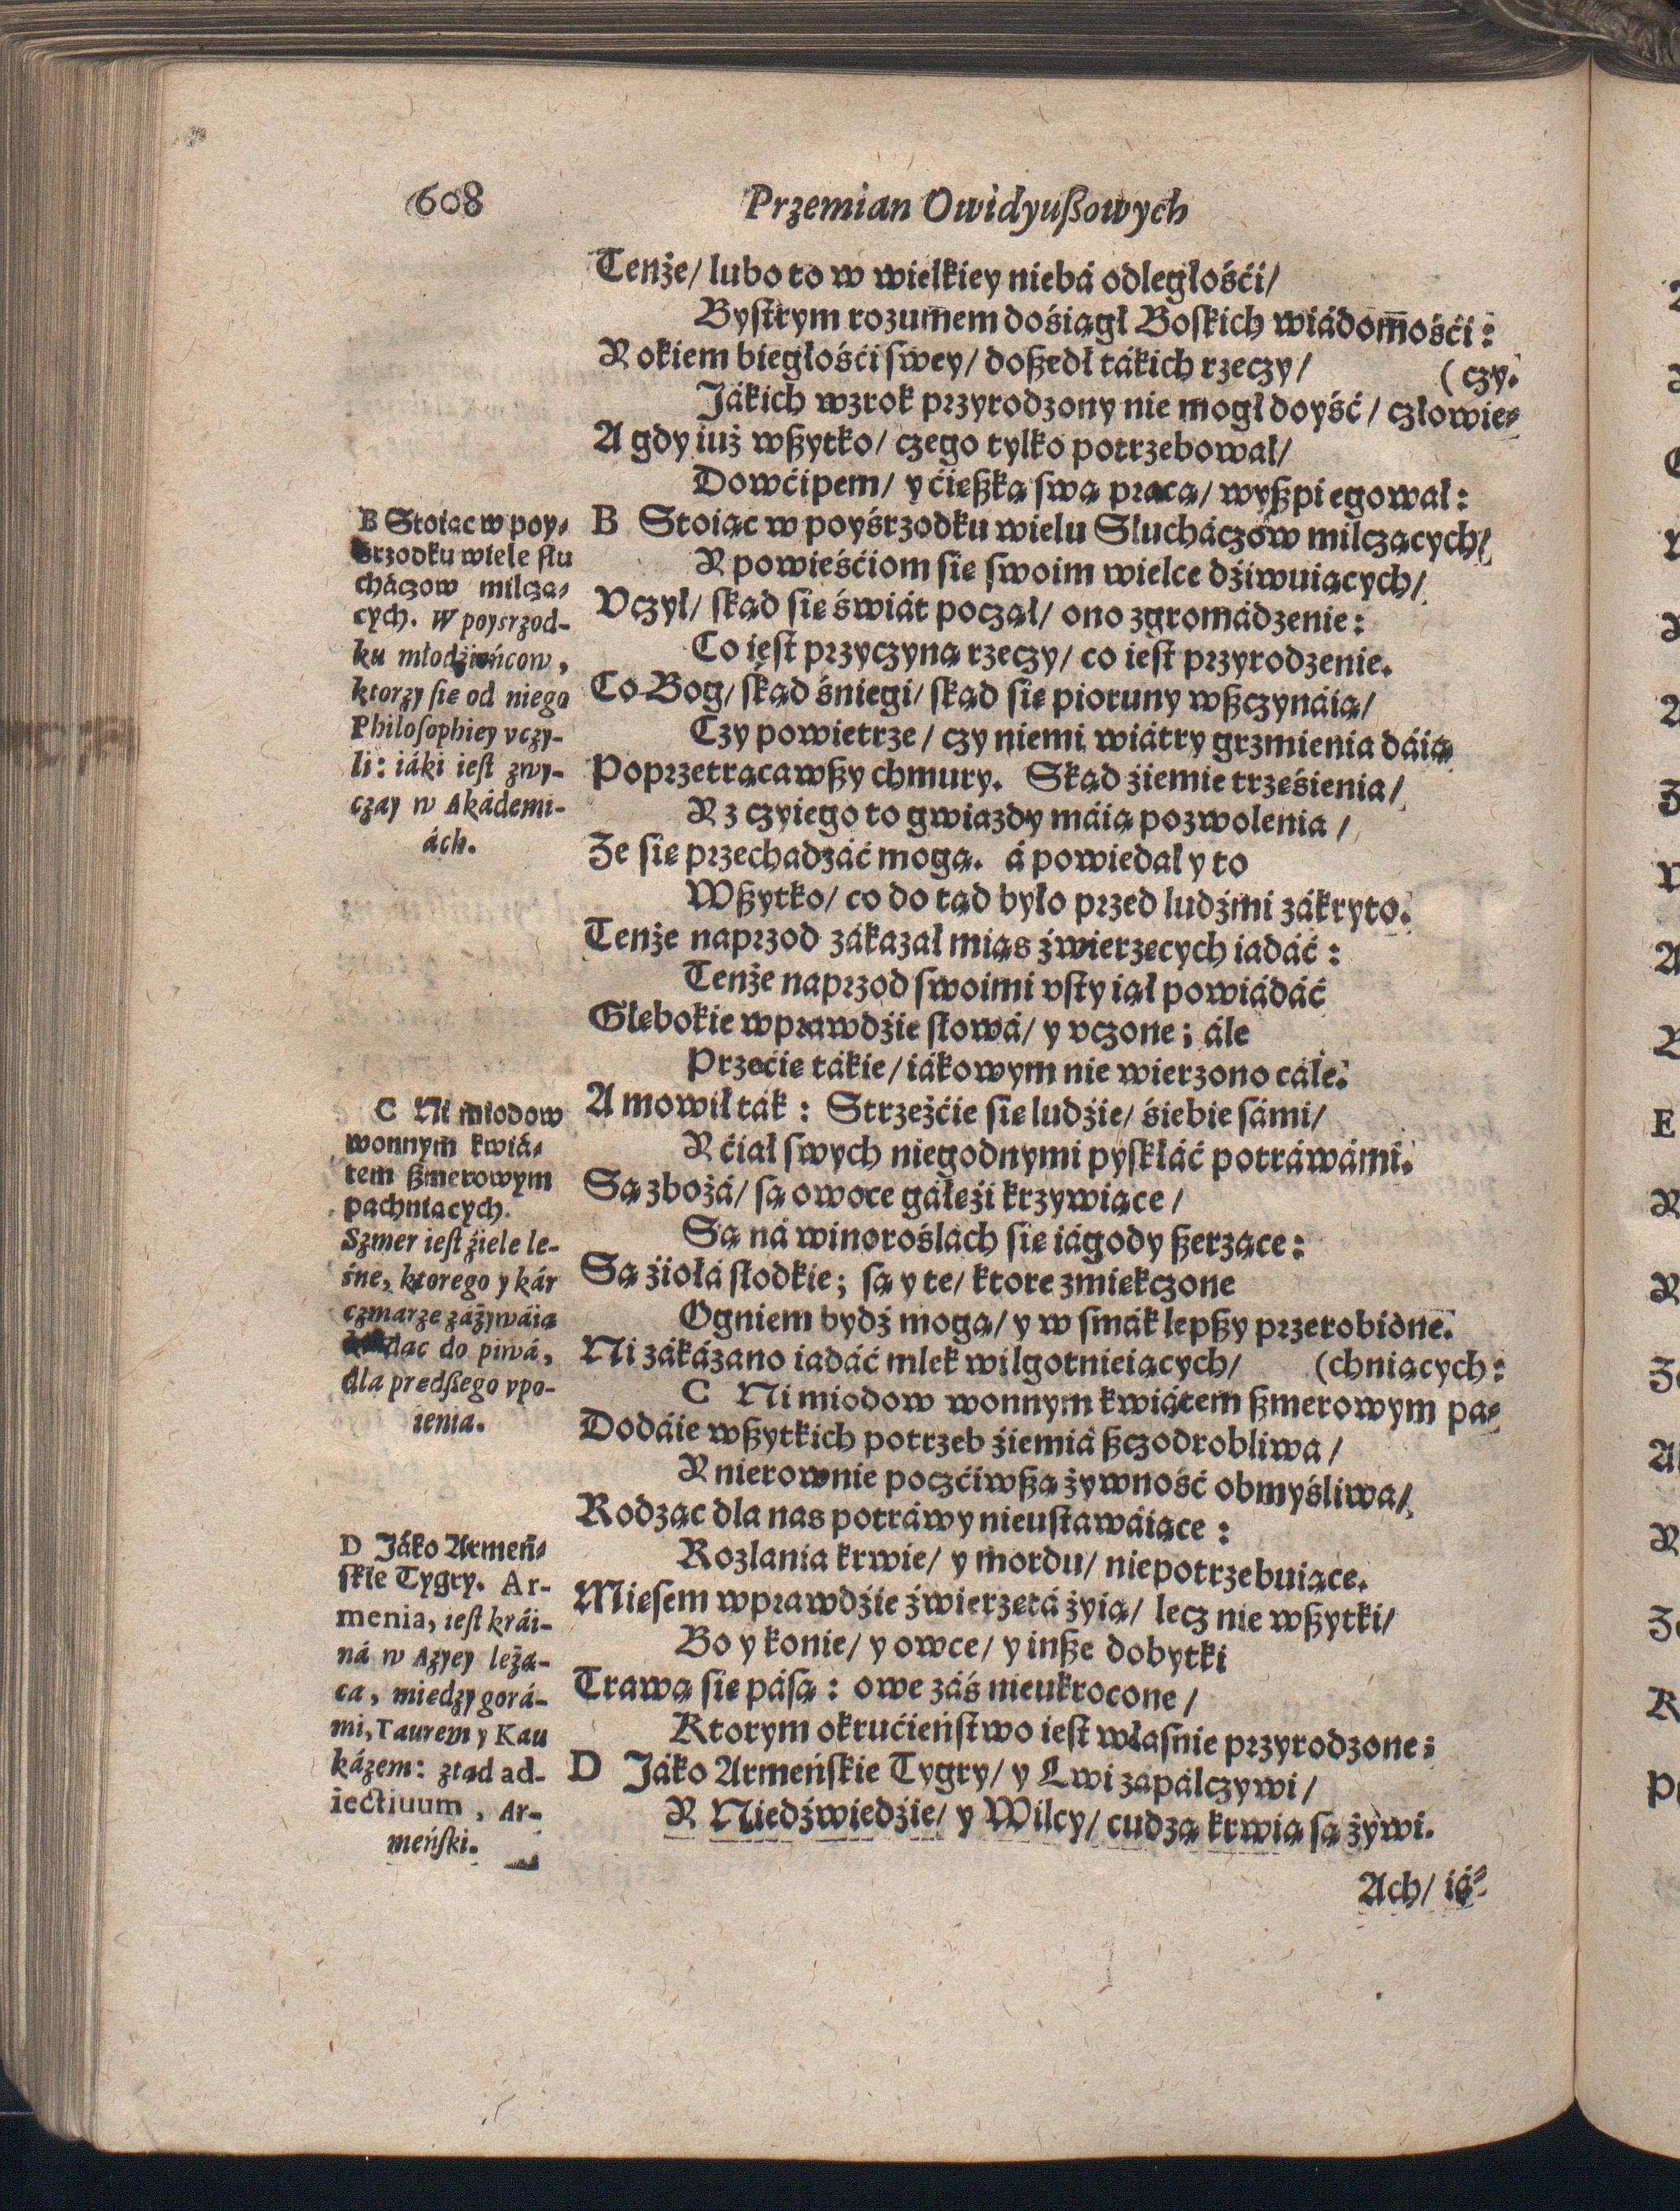 608
Przemian Owidyußowych
Tenże/ lubo to w wielkiey niebá odległośći/
Bystrym rozumem dośiągł Boskich wiádomośći:
R okiem biegłośći swey/ doßedł tákich rzeczy/
(czy.
Jákich wzrok przyrodzony nie mogł doyść/ człowie-
A gdy iuż wßytko/ czego tylko potrzebował/
Dowćipem/ y ćießką swą pracą/ wyßpiegował:
B Stoiąc w poyśrzodku wielu Słucháczow milczących/
R powieśćiom się swoim wielce dźiwuiących/
Vczył/ skąd się świát począł/ ono zgromádzenie:
Co iest przyczyną rzeczy/ co iest przyrodzenie.
Co Bog/ skąd śniegi/ skąd się pioruny wßczynáią/
Czy powietrze/ czy niemi wiátry grzmienia dáią
Poprzetrącawßy chmury. Skąd źiemie trzęśienia/
R z czyiego to gwiazdy máią pozwolenia/
Że się przechadzáć mogą. á powiedał y to
Wßytko/ co do tąd było przed ludźmi zákryto.
Tenże naprzod zákazał mięs źwierzęcych iadáć:
Tenże naprzod swoimi vsty iął powiádáć
Głębokie wprawdźie słowá/ y vczone; ále
Przećię tákie/ iákowym nie wierzono cále.
A mowił ták: Strzeżćie się ludźie/ śiebie sámi/
R ćiał swych niegodnymi pyskłáć potráwámi.
Są zbożá/ są owoce gáłęźi krzywiące/
Są ná winoroślách się iágody ßerzące:
Są źiołá słodkie; są y te/ ktore zmiękczone
Ogniem bydź mogą/ y w smák lepßy przerobione.
Ni zákázano iadáć mlek wilgotnieiących/
(chniących:
C Ni miodow wonnym kwiátem ßmerowym pa-
Dodáie wßytkich potrzeb źiemiá ßczodrobliwa/
R nierownie poczćiwßą żywność obmyśliwa/
Rodząc dla nas potráwy nieustawáiące:
Rozlania krwie/ y mordu/ niepotrzebuiące.
Mięsem wprawdźie źwierzętá żyią/ lecz nie wßytki/
Bo y konie/ y owce/ y inße dobytki
Trawą się pásą: owe záś nieukrocone/
Ktorym okrućieństwo iest własnie przyrodzone;
D Jáko Armeńskie Tygry/ y Lwi zapálczywi/
R Niedźwiedźie/ y Wilcy/ cudzą krwią są żywi.
Ach/ iá-
B Stoiąc w poy-
śrzodku wiele słu
cháczow milczą-
cych. W poysrzod-
ku młodźieńcow,
ktorzy się od niego
Philosophiey vczy-
li: iáki iest zwy-
czay w Akádemi-
ách.
C Ni miodow
wonnym kwiá-
tem ßmerowym
pachniących.
Szmer iest źiele le-
śne, ktorego y kár
czmarze záżywáią
do piwá,
dla prędßego vpo-
ienia.
D Jáko Armeń-
skie Tygry. Ar-
menia, iest krái-
ná w Azyey leżą-
ca, miedzy gorá-
mi, Taurem y Kau
kázem: ztąd ad-
iectiuum, Ar-
meński.